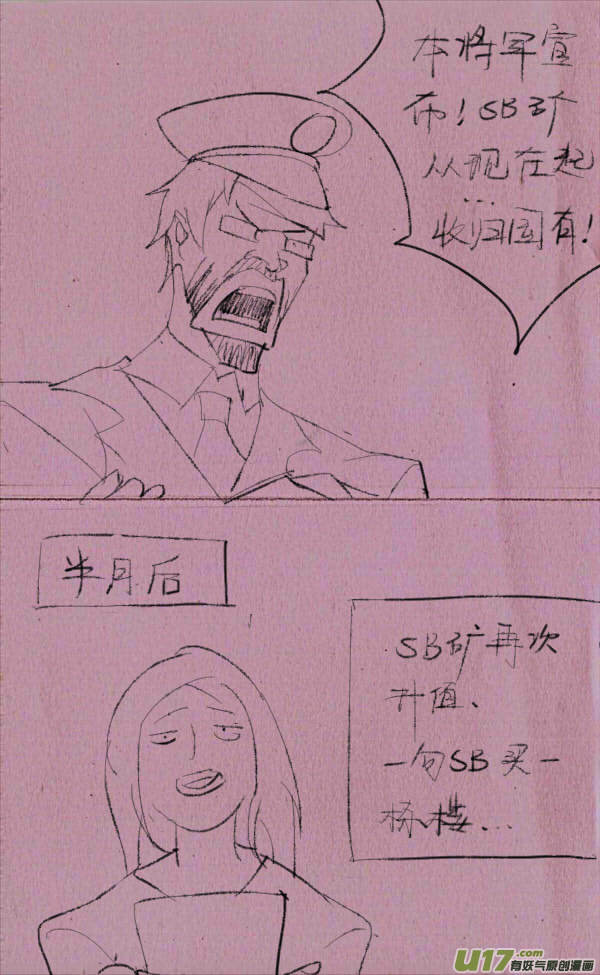 本将军宣
布！SB矿
从现在起
...
收归国有！
半月后
SB矿再次
升值、
一句SB买一
栋楼...
U17.com
有妖气原创漫画